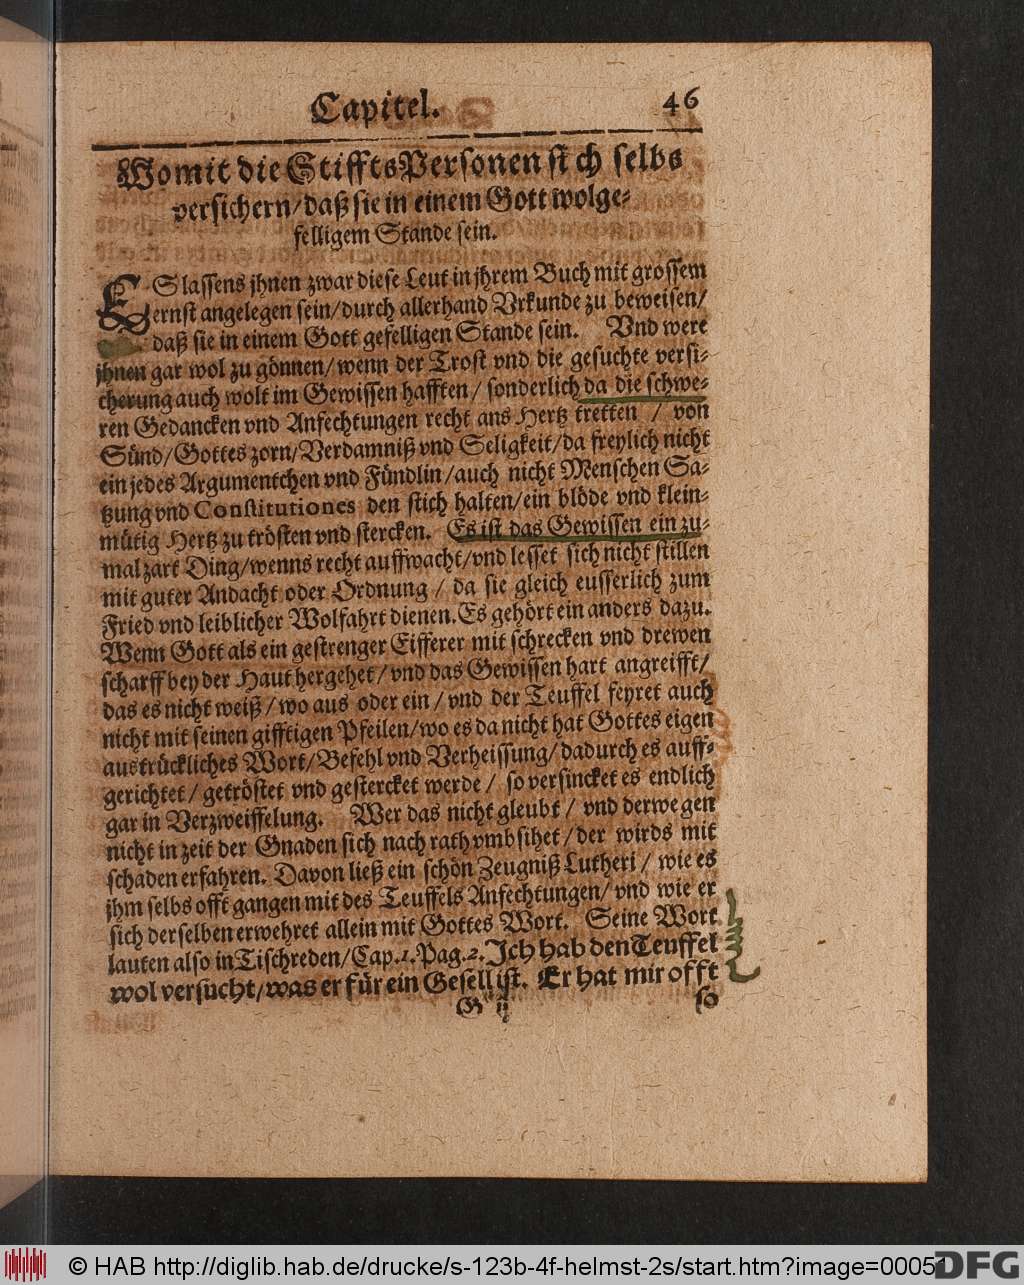 Capitel. 46
Womit die StifftsPersonen sich selbs
versichern/daß sie in einem Gott wolge-
felligem Stande sein.
ES lassens jhnen zwar diese Leut in jhrem Buch mit grossem
ernst angelegen sein/durch allerhand Vrkunde zu beweisen/
daß sie in einem Gott gefelligen Stande sein. Vnd were
jhnen gar wol zu gönnen/wenn der Trost vnd die gesuchte versi-
cherung auch wolt im Gewissen hafften/ sonderlich da die schwe-
ren Gedancken vnd Anfechtungen recht ans Hertz tretten / von
Sünd/Gottes zorn/Verdamniß vnd Seligkeit/da freylich nicht
ein jedes Argumentchen vnd Fündlin/auch nicht Menschen Sa-
tzung vnd Constitutiones den stich halten/ein blöde vnd klein-
mütig Hertz zu trösten vnd stercken. Es ist das Gewissen ein zu-
mal zart Ding/wenns recht auffwacht/vnd lesset sich nicht stillen
mit guter Andacht oder Ordnung / da sie gleich eusserlich zum
Fried vnd leiblicher Wolfahrt dienen. Es gehört ein anders dazu.
Wenn Gott als ein gestrenger Eifferer mit schrecken vnd drewen
scharff bey der Haut hergehet/vnd das Gewissen hart angreifft/
das es nicht weiß/wo aus oder ein/vnd der Teuffel feyret auch
nicht mit seinen gifftigen Pfeilen/wo es da nicht hat Gottes eigen
austrückliches Wort/Befehl vnd Verheissung/dadurch es auff-
gerichtet/getröstet vnd gestercket werde/ so versincket es endlich
gar in Verzweiffelung. Wer das nicht gleubt/ vnd derwegen
nicht in zeit der Gnaden sich nach rath vmbsihet/der wirds mit
schaden erfahren. Davon ließ ein schön Zeugniß Lutheri/ wie es
jhm selbs offt gangen mit des Teuffels Anfechtungen/vnd wie er
sich derselben erwehret allein mit Gottes Wort. Seine Wort
lauten also in Tischreden/Cap.1.Pag.2. Ich hab den Teuffel
wol versucht/was er für ein Gesell ist. Er hat mir offt
G ij so
© HAB http://diglib.hab.de/drucke/s-123b-4f-helmst-2s/start.htm?image=0005
DFG